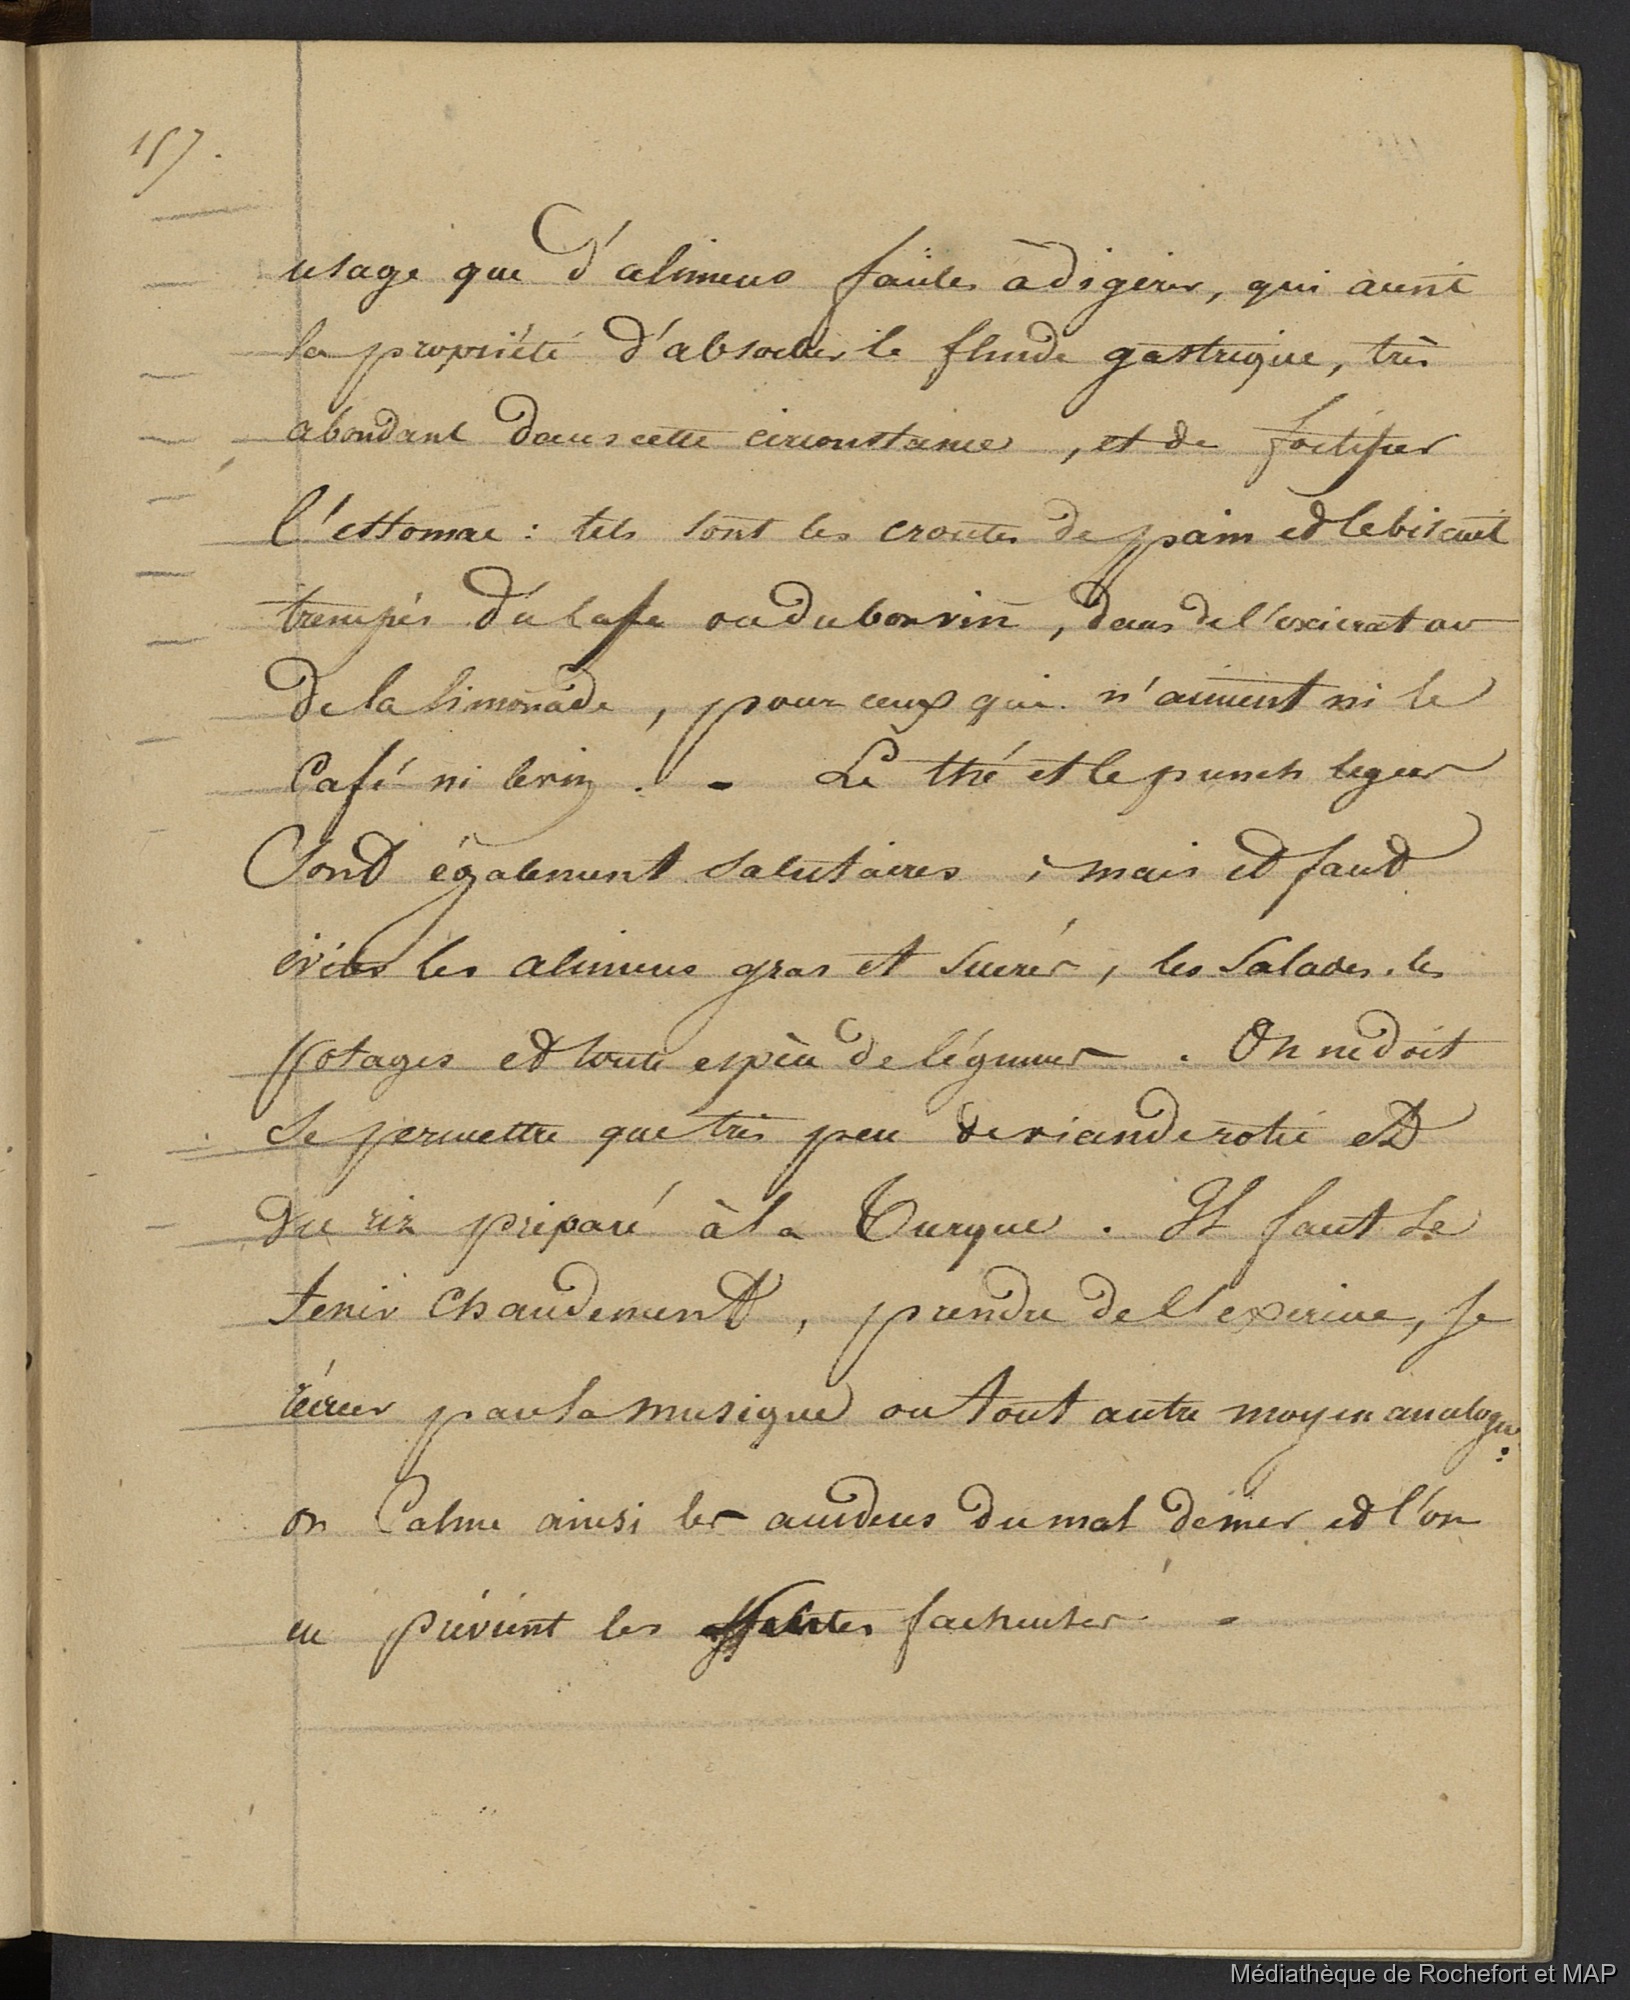 157.
usage que d'alimens faciles à digérer, qui aient
la propriété d'absorber le fluide gastrique, très
abondant dans cette circonstance, et de fortifier
l'estomac : tels sont les croutes de pain et le biscuit
trempés du café ou du bon vin, dans de l'oxicrat ou
de la limonade, pour ceux qui n'aiment ni le
Café ni le vin. - Le thé et le punch leger
Sont également salutaires ; mais il faut
éviter les alimens gras et sucrés, les Salades, les
potages et toute espèce de légumes. On ne doit
se permettre que très peu de viande rotie et
du riz préparé à la Turque. Il faut se
tenir chaudement, prendre de l'exercice, se
récréer par la musique ou tout autre moyen analogue :
on Calme ainsi les accidens du mal de mer et l'on
en prévient les suites facheuses -
Médiathèque de Rochefort et MAP